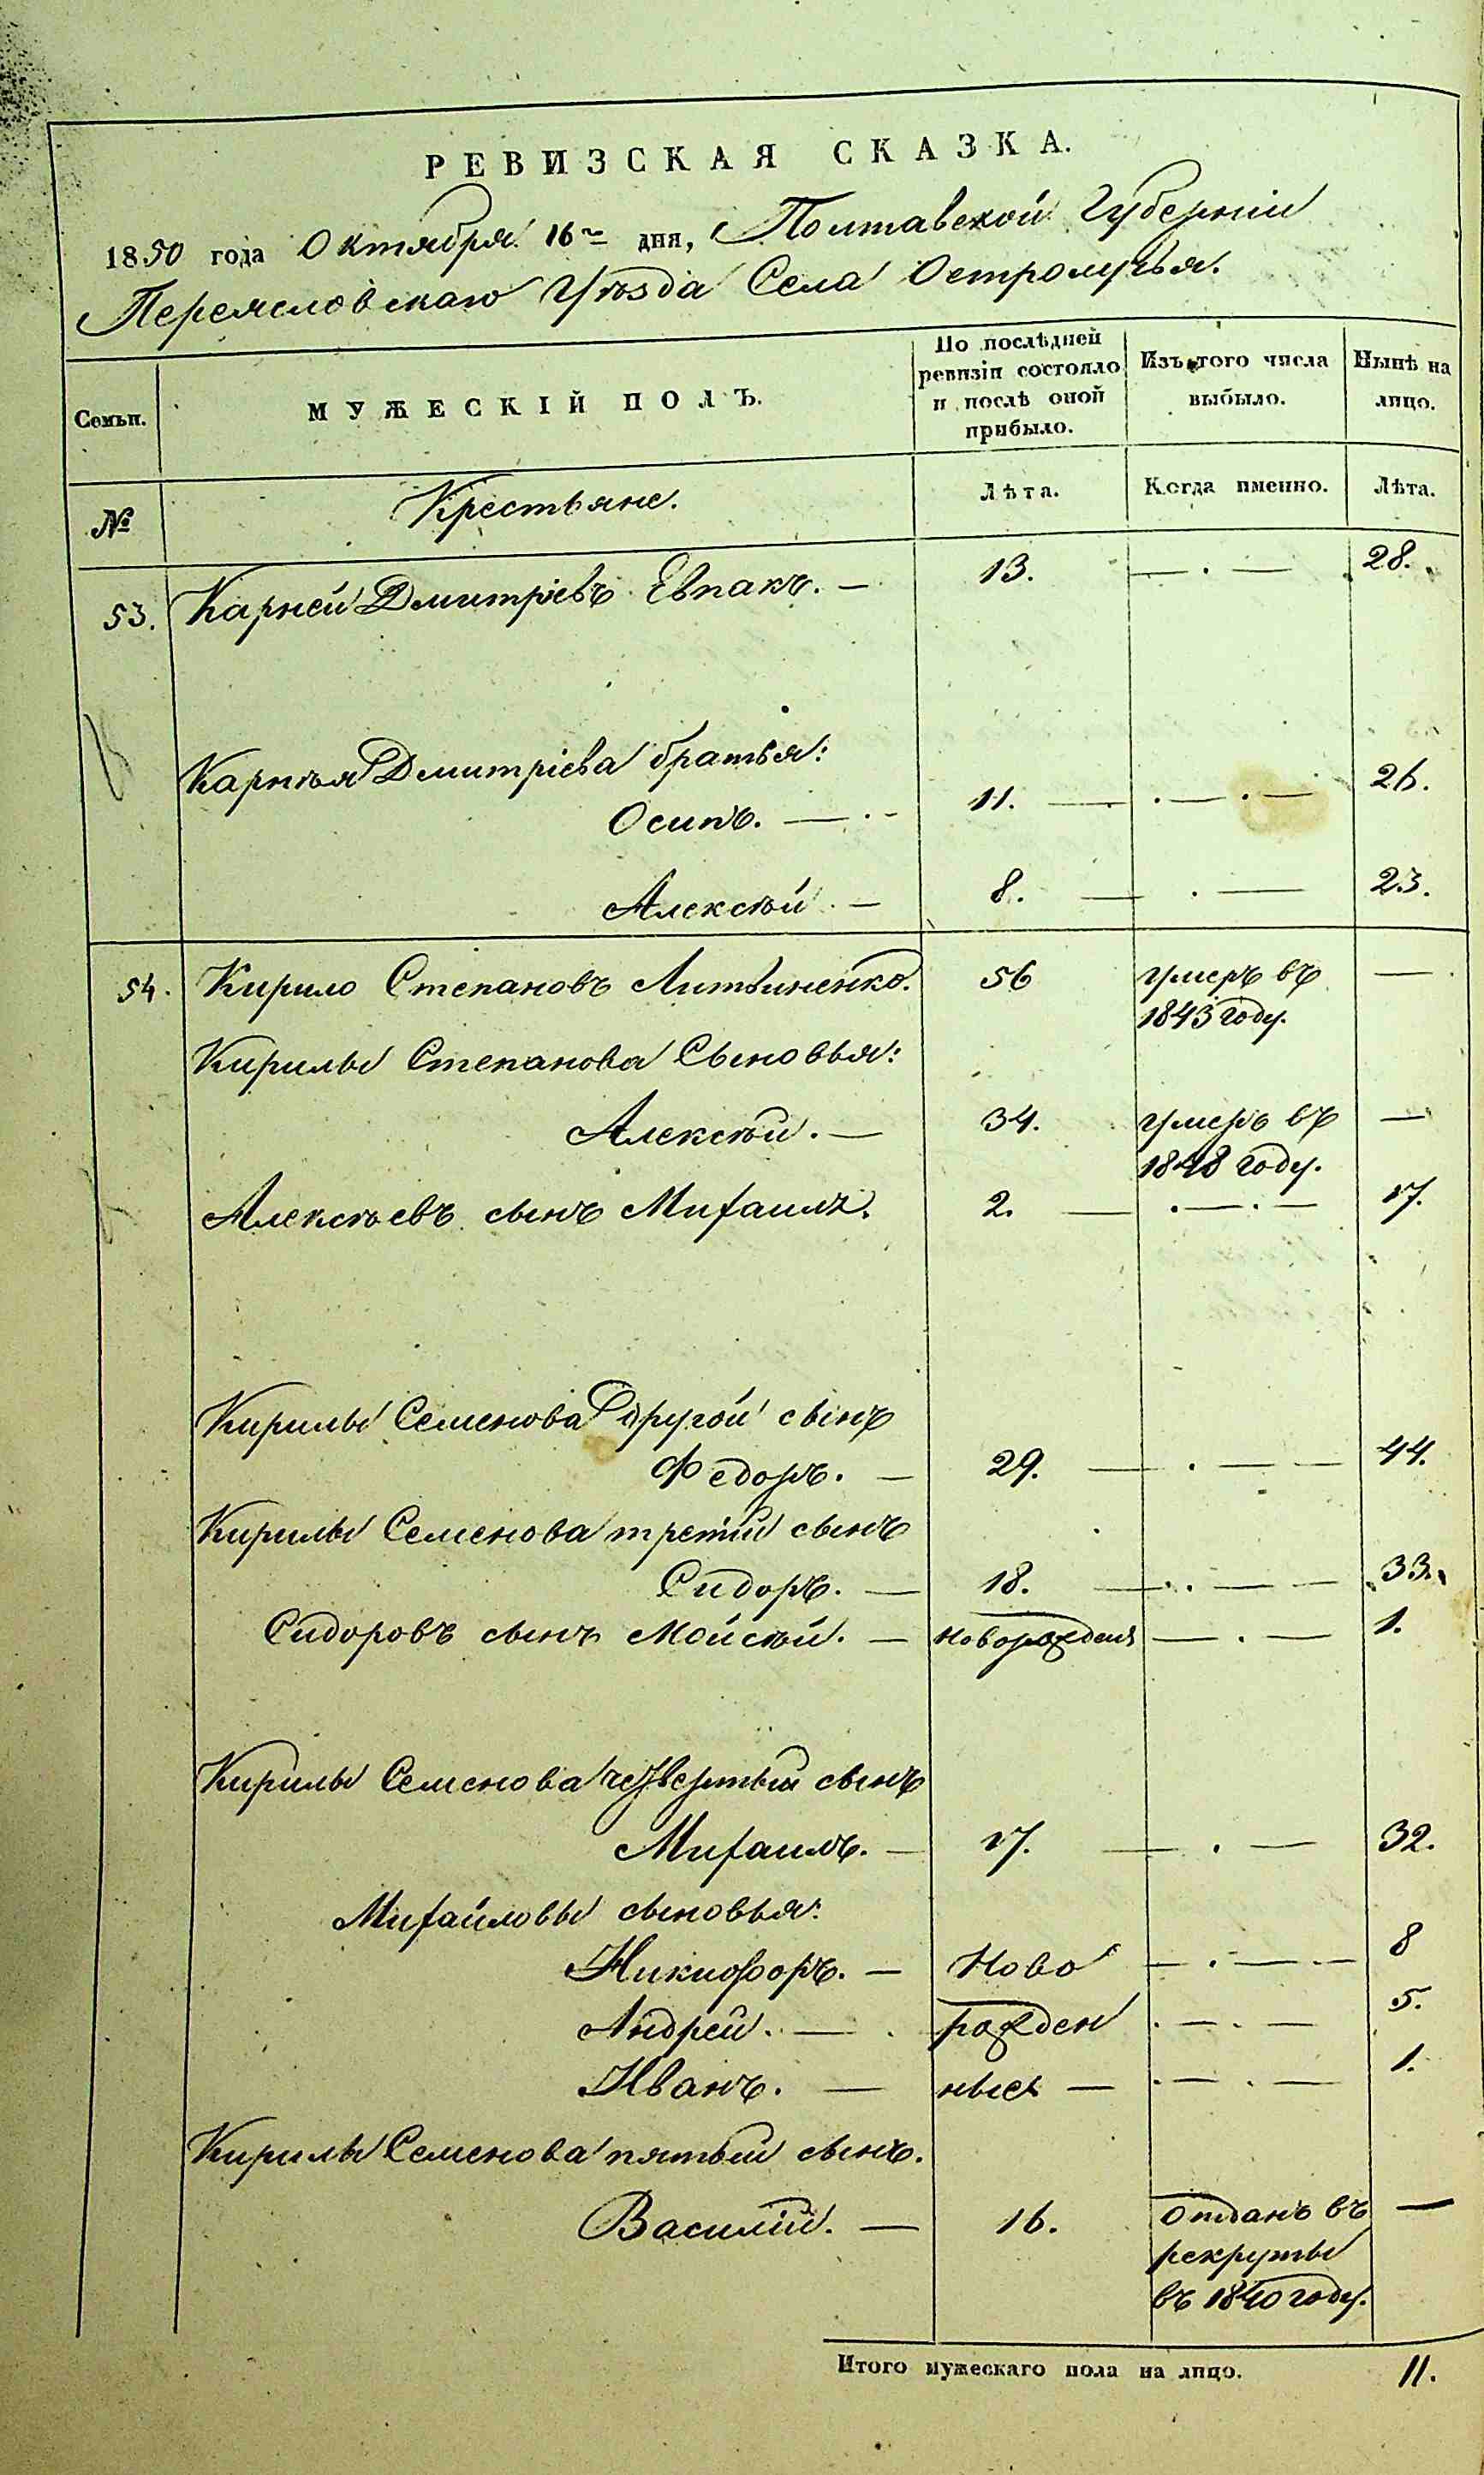 РЕВИЗСКАЯ СКАЗКА.
1850 года Октября 16го дня, Полтавской Губерніи
Переясловскаго Уѣзда Села Остролучья.
Семьи.
МУЖЕСКІЙ ПОЛЪ.
По послѣдней
ревизіи состояло
и послѣ оной
прибыло.
Изъ того числа
выбыло.
Нынѣ на
лицо.
№
Крестьяне.
Лѣта.
Когда именно.
Лѣта.
53. Карней Дмитріевъ Евпакъ. — 13. — . — 28.
Карнѣя Дмитріева братья:
Осипъ. — 11. — . — . — 26.
Алексѣй — 8. — . — 23.
54. Кирило Степановъ Литвиненко. 56 умеръ въ —
1843 году.
Кирилы Степанова Сыновья:
Алексѣй. — 34. умеръ въ —
1848 году.
Алексѣевъ сынъ Михаилъ. 2. — . — . — 17.
Кирилы Семенова другой сынъ
Федоръ. — 29. — . — — 44.
Кирилы Семенова третій сынъ
Сидоръ. — 18. — . — — 33.
Сидоровъ сынъ Мойсѣй. — новорожден — . — 1.
Кирилы Семенова четвертый сынъ
Михаилъ. — 17. — . — 32.
Михайловы сыновья:
Никифоръ. — Ново — . — . — 8
Андрей. — рожден . — . — 5.
Иванъ. — ные — . — . — 1.
Кирилы Семенова пятый сынъ.
Василій. — 16. Отданъ въ —
рекруты
въ 1840 году.
Итого мужескаго пола на лицо. 11.